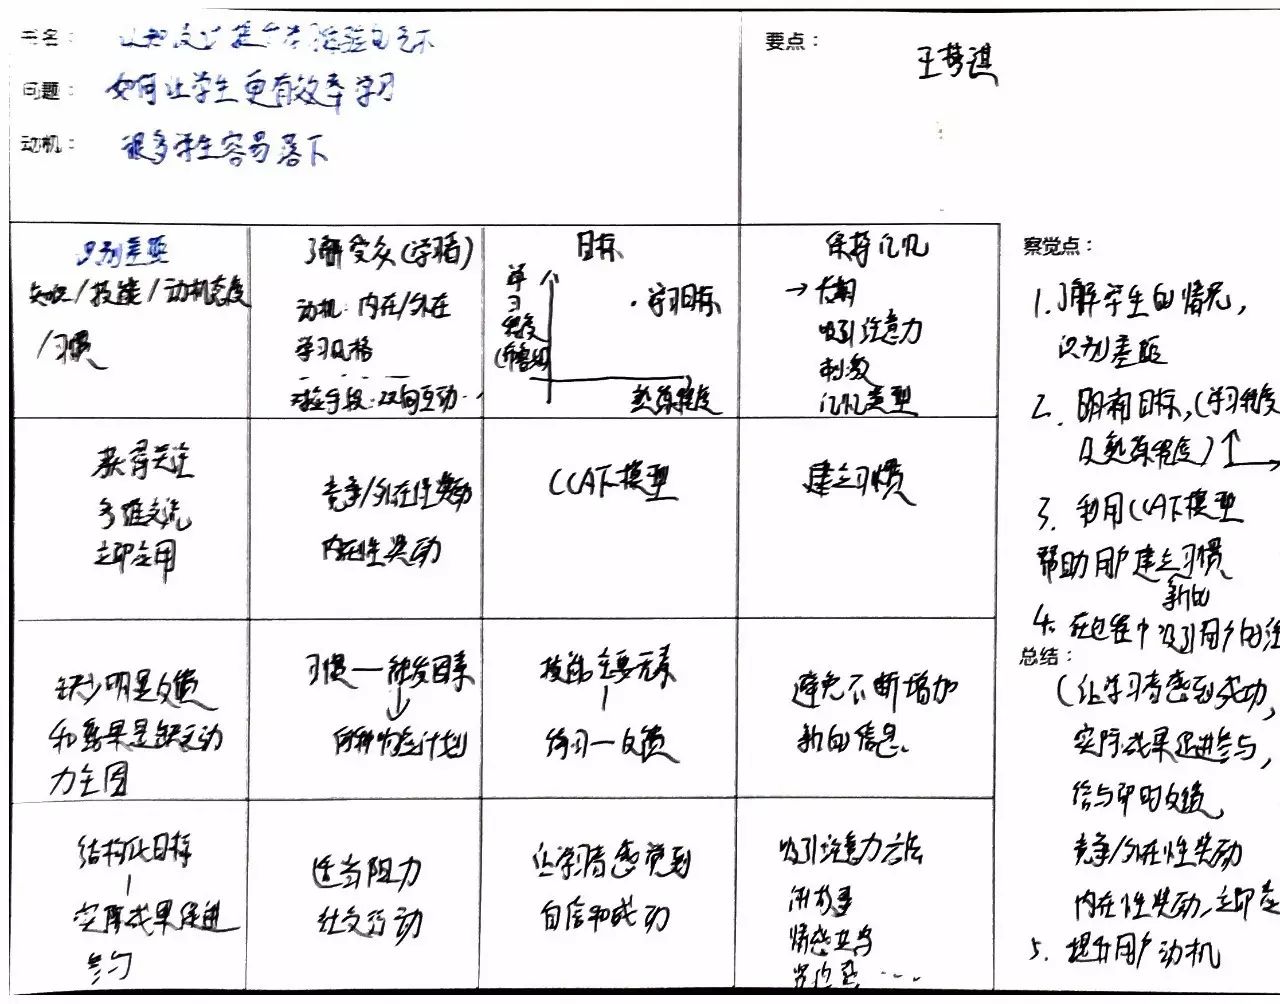 书名：
问题： 如何让学生更有效率学习
动机： 很多学生容易落下
要点：
王梦淇
识别差距
知识/技能/动机态度
/习惯
了解受众(学习者)
动机：内在/外在
学习风格
手段：双向互动…
目标
学习
程度
·学习目标
熟练程度
保持记忆
→长期
吸引注意力
刺激
记忆类型
获得关注
立即
竞争/外在性奖励
内在性奖励
CCAF模型
建立习惯
缺少明显反馈
和结果是缺乏动
力主因
习惯—触发因素
↓
技能主要元素
练习—反馈
避免不断增加
新的信息。
结构化目标
实际成果促进
参与
适当阻力
社交行动
让学习者感觉到
自信和成功
吸引注意力方法
讲故事
情感共鸣
察觉点：
1.了解学生的情况，
识别差距
2. 明确目标，(学习程度
及熟练程度)
3. 利用CCAF模型
帮助用户建立习惯
4. 在过程中吸引用户的注
总结：
(让学习者感到成功，
实际成果促进参与，
给与即时反馈，
竞争/外在性奖励
内在性奖励、立即
5. 提升用户动机